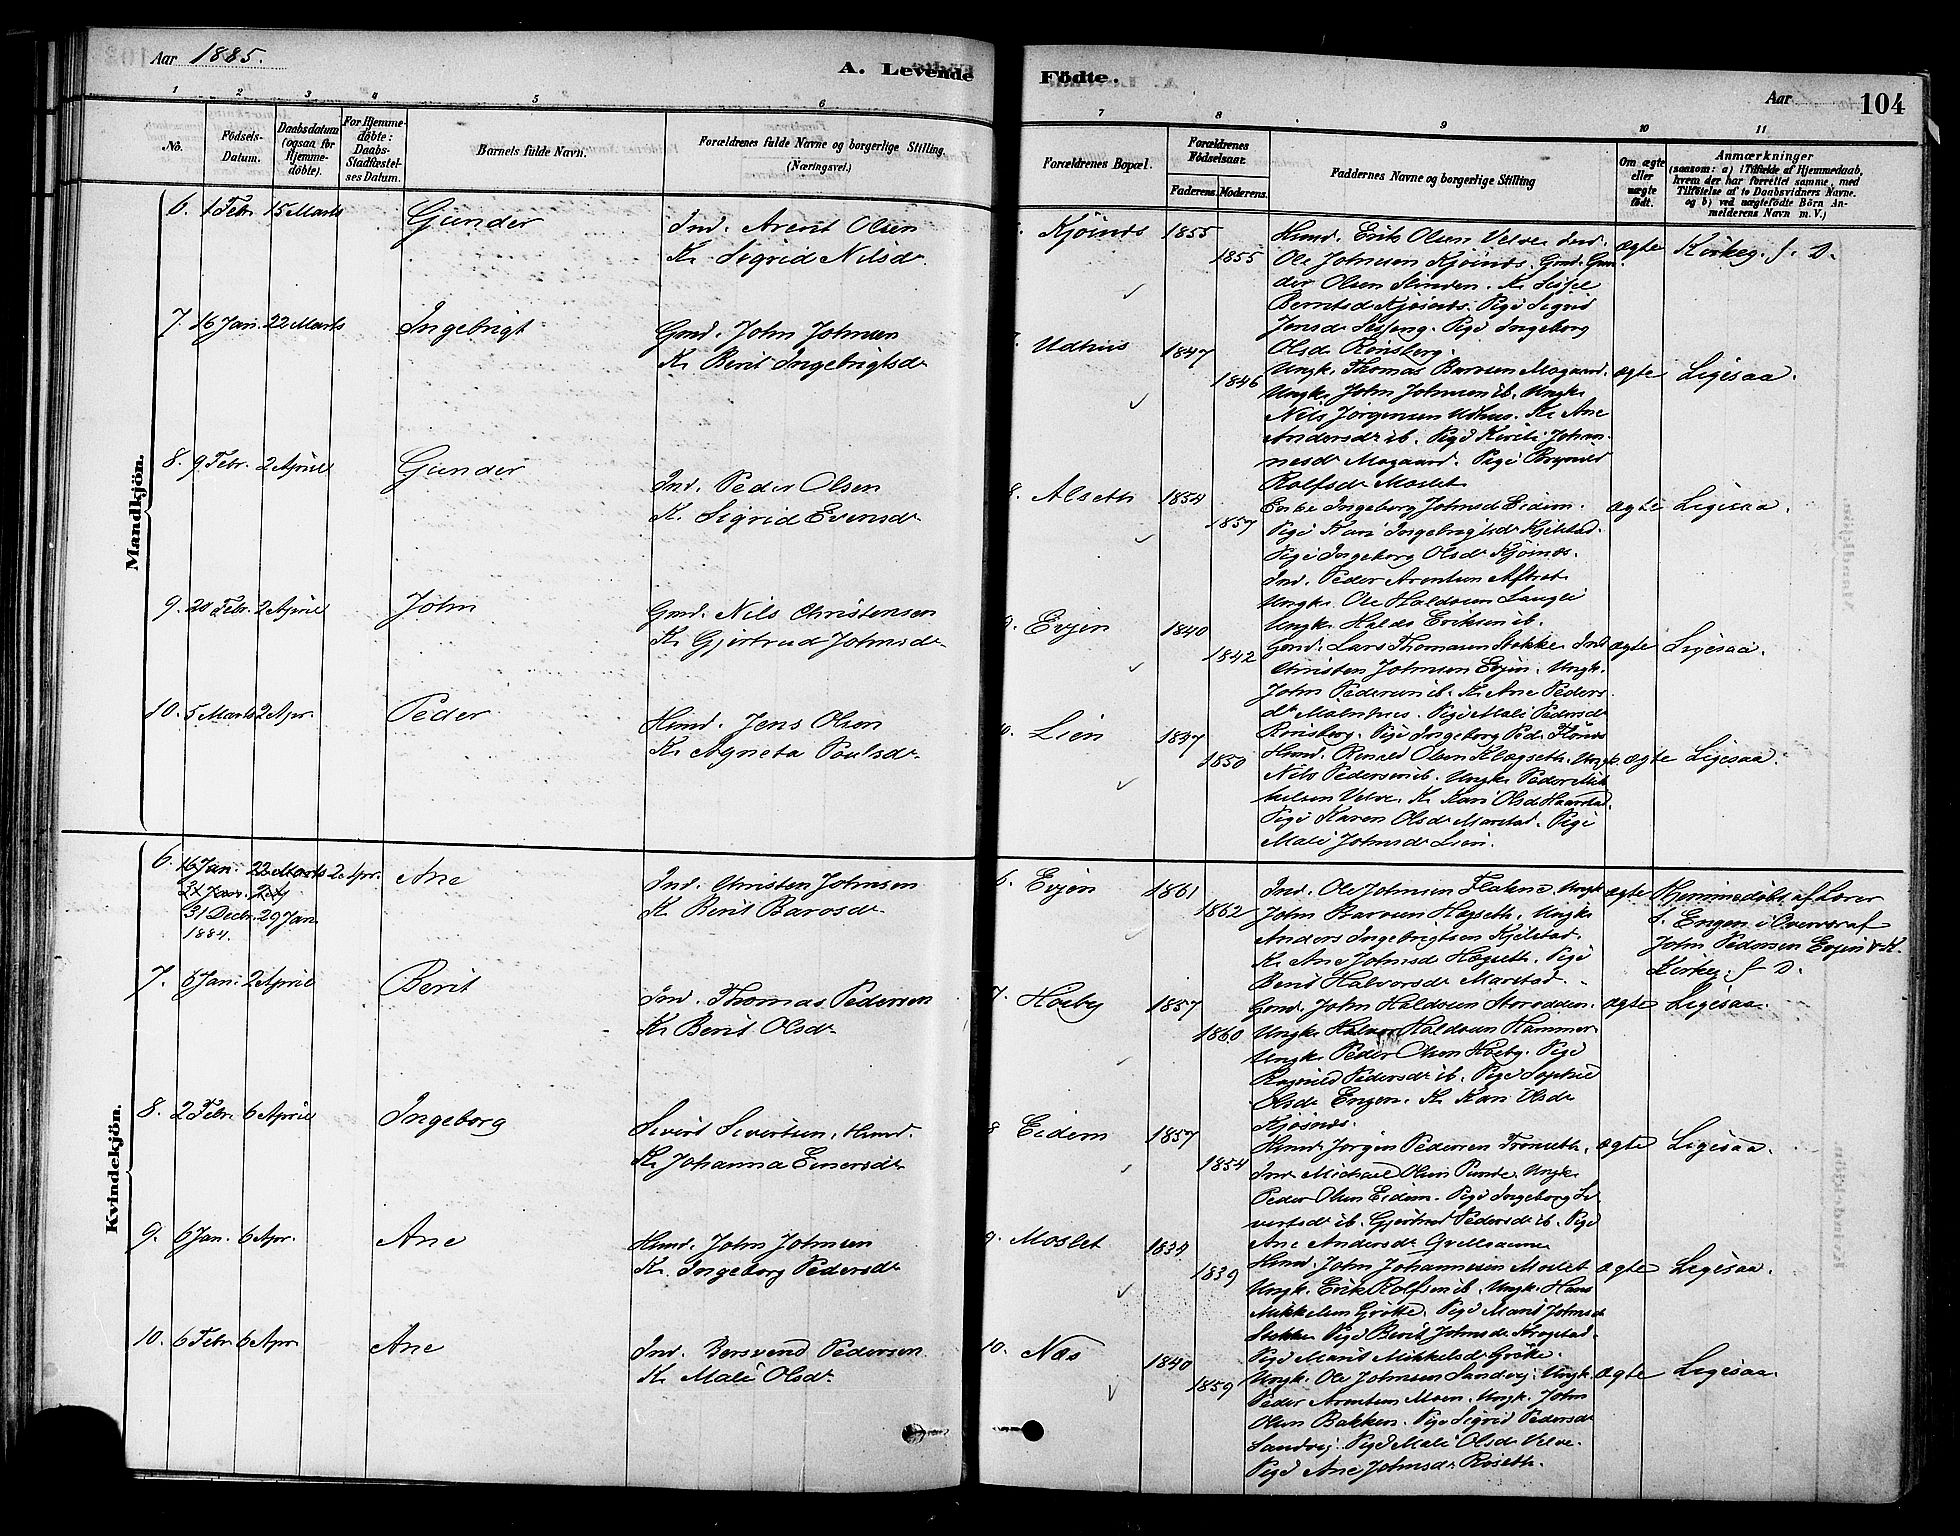 Aar 1885.
A. Levende
Födte.
Aar
104
1
2
3
4
5
6
7
8
9
10
11
No.
Födsels-
Datum.
Daabsdatum
(ogsaa for
Hjemme-
döbte).
For Hjemme-
döbte:
Daabs-
Stadfæstel-
ses Datum.
Barnets fulde Navn.
Forældrenes fulde Navne og borgerlige Stilling.
(Næringsvei.)
Forældrenes Bopæl.
Forældrenes
Födselsaar.
Faderens.
Moderens.
Faddernes Navne og borgerlige Stilling
Om ægte
eller
uægte
födt.
Anmærkninger
(saasom: a) i Tilfælde af Hjemmedaab,
hvem der har forrettet samme, med
Tilföielse af to Daabsvidners Navne.
og b) ved uægtefödte Börn An-
melderens Navn m. V.)
Mandkjön.
6. 1 Febr. 15 Marts
Gunder
Ind. Arent Olsen
K. Sigrid Nilsdr.
Kjösnæs
1855
1855
Husmd. Erik Olsen Velve. Ind.
Ole Johnsen Kjösnæs. Gmd. Gun-
der Olsen Slinden. K. Sissel
Berntsdr Kjösnæs. Pige Sigrid
Jensdr Sesseng. Pige Ingeborg
Olsdr Rönsberg.
ægte
Kirkeg. f. D.
7. 16 Jan. 22 Marts
Ingebrigt
Gmd. John Johnsen
K. Berit Ingebrigtsdr
Udhus
1847
1846
Ungk. Thomas Barosen Mogaard.
Ungk. John Johnsen ib. Ungk.
Nils Jörgensen Udhus. K. Ane
Andersdr ib. Pige Kirsti Johan-
nesdr Mogaard. Pige Brynild
Rolfsdr Moslet
ægte
Ligesaa.
8. 9 Febr. 2 April
Gunder
Ind. Peder Olsen
K. Sigrid Evensdr
8. Alseth
1854
1857
Enke Ingeborg Johnsdr Eidem.
Pige Kari Ingebrigtsdr Kjelstad.
Pige Ingeborg Olsdr Kjösnæs.
Ind. Peder Arentsen Aftret
Ungk. Ole Haldosen Langli
Ungk. Haldo Eriksen ib.
ægte
Ligesaa.
9. 20 Febr. 2 April
John
Gmd. Nils Christensen
K. Gjertrud Johnsdr
9. Evjen
1840
1842
Gmd. Lars Thomasen Stokke. Ind
Christen Johnsen Evjen. Ungk.
John Pedersen ib. K. Ane Peders
dr Molnhus. Pige Mali Pedersdr
Rönsberg. Pige Ingeborg Pedr. Flönes
ægte
Ligesaa.
10. 5 Marts 2 Apr.
Peder
Husmd. Jens Olsen
K. Agneta Poulsdr
10. Lien
1837
1850
Husmd. Renald Olsen Klegseth. Ungk.
Nils Pedersen ib. Ungk. Peder Mik-
kelsen Velve. K. Kari Olsdr Haarstad.
Pige Karen Olsdr Marstad. Pige
Mali Johnsdr Lien.
ægte
Ligesaa.
Kvindekjön.
6. 16 Jan. 22 Marts 2 Apr.
31 Decbr. 29 Jan.
1884.
Ane
Ind. Christen Johnsen
K. Berit Barosdr
6. Evjen
1861
1862
Ind. Ole Johnsen Flakne. Ungk
John Barosen Hogseth. Ungk.
Anders Ingebrigtsen Kjelstad.
K. Ane Johnsdr Hogseth. Pige
Berit Halvorsdr Marstad.
ægte
Hjemmedöbt af Lærer
S. Engen i Overvær af
John Pedersen Evjen & K.
Kirkeg. f. D.
7. 8 Jan. 2 April
Berit
Ind. Thomas Pedersen
K. Berit Olsdr
7. Hoeby
1857
1860
Gmd. John Haldosen Storodden.
Ungk. Halvor Haldosen Hammer
Ungk. Peder Olsen Hoeby. Pige
Ragnild Pedersdr ib. Pige Sophie
Olsdr Engen. K. Kari Olsdr
Kjösnæs.
ægte
Ligesaa.
8. 2 Febr. 6 April
Ingeborg
Sivert Sivertsen, Husmd.
K. Johanna Einersdr
8 Eidem
1857
1854
Husmd. Jörgen Pedersen Trönseth.
Ind. Michael Olsen Runde. Ungk.
Peder Olsen Eidem. Pige Ingeborg Si-
vertsdr ib. Gjertrud Pedersdr ib. Pige
Ane Andersdr
ægte
Ligesaa.
9. 6 Jan. 6 Apr.
Ane
Husmd. John Johnsen
K. Ingeborg Pedersdr
9 Moslet
1834
1839
Husmd. John Johannesen Moslet
Ungk. Erik Rolfsen ib. Ungk. Hans
Mikkelsen Grötte. Pige Marit Johnsdr
Stokke. Pige Berit Johnsdr Krogstad.
Pige Marit Mikkelsdr Grötte.
ægte
Ligesaa.
10. 6 Febr. 6 Apr.
Ane
Ind. Bersvend Pedersen
K. Mali Olsdr.
10. Næs
1840
1859
Ungk. Ole Johnsen Sandvig. Ungk.
Peder Arentsen Moen. Ungk. John
Olsen Bakken. Pige Sigrid Pedersdr
Sandvig. Pige Mali Olsdr Velve.
Pige Ane Johnsdr Roseth.
ægte
Ligesaa.